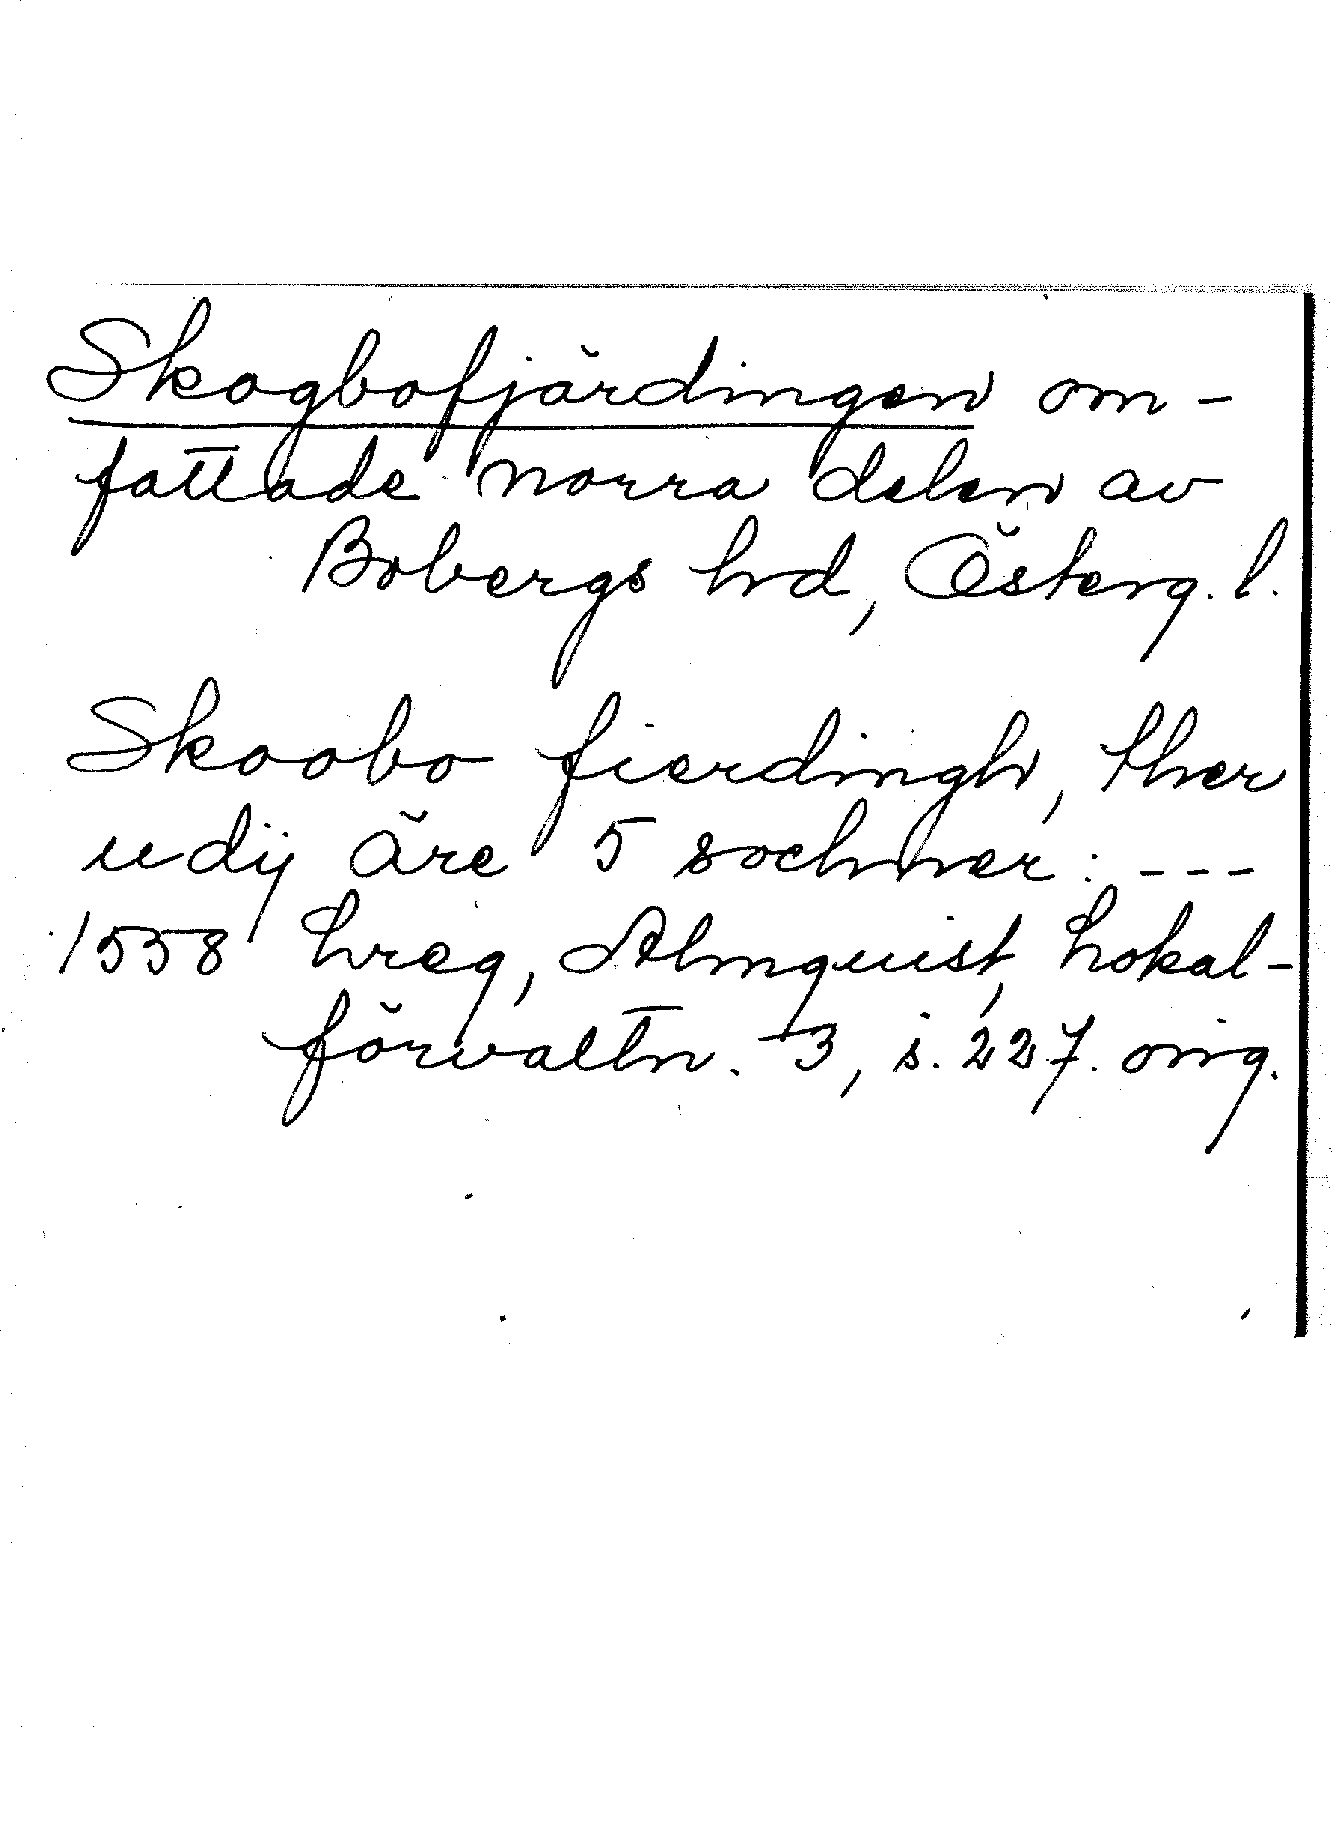 Skogbofjärdingen om-
fattade norra delen av
Bobergs hrd, Österg. l.
Skoobo fierdingh, ther
udij äre 5 sochner: ---
1558 hreg, Almquist, Lokal-
förvaltn. 3, s. 227. orig.